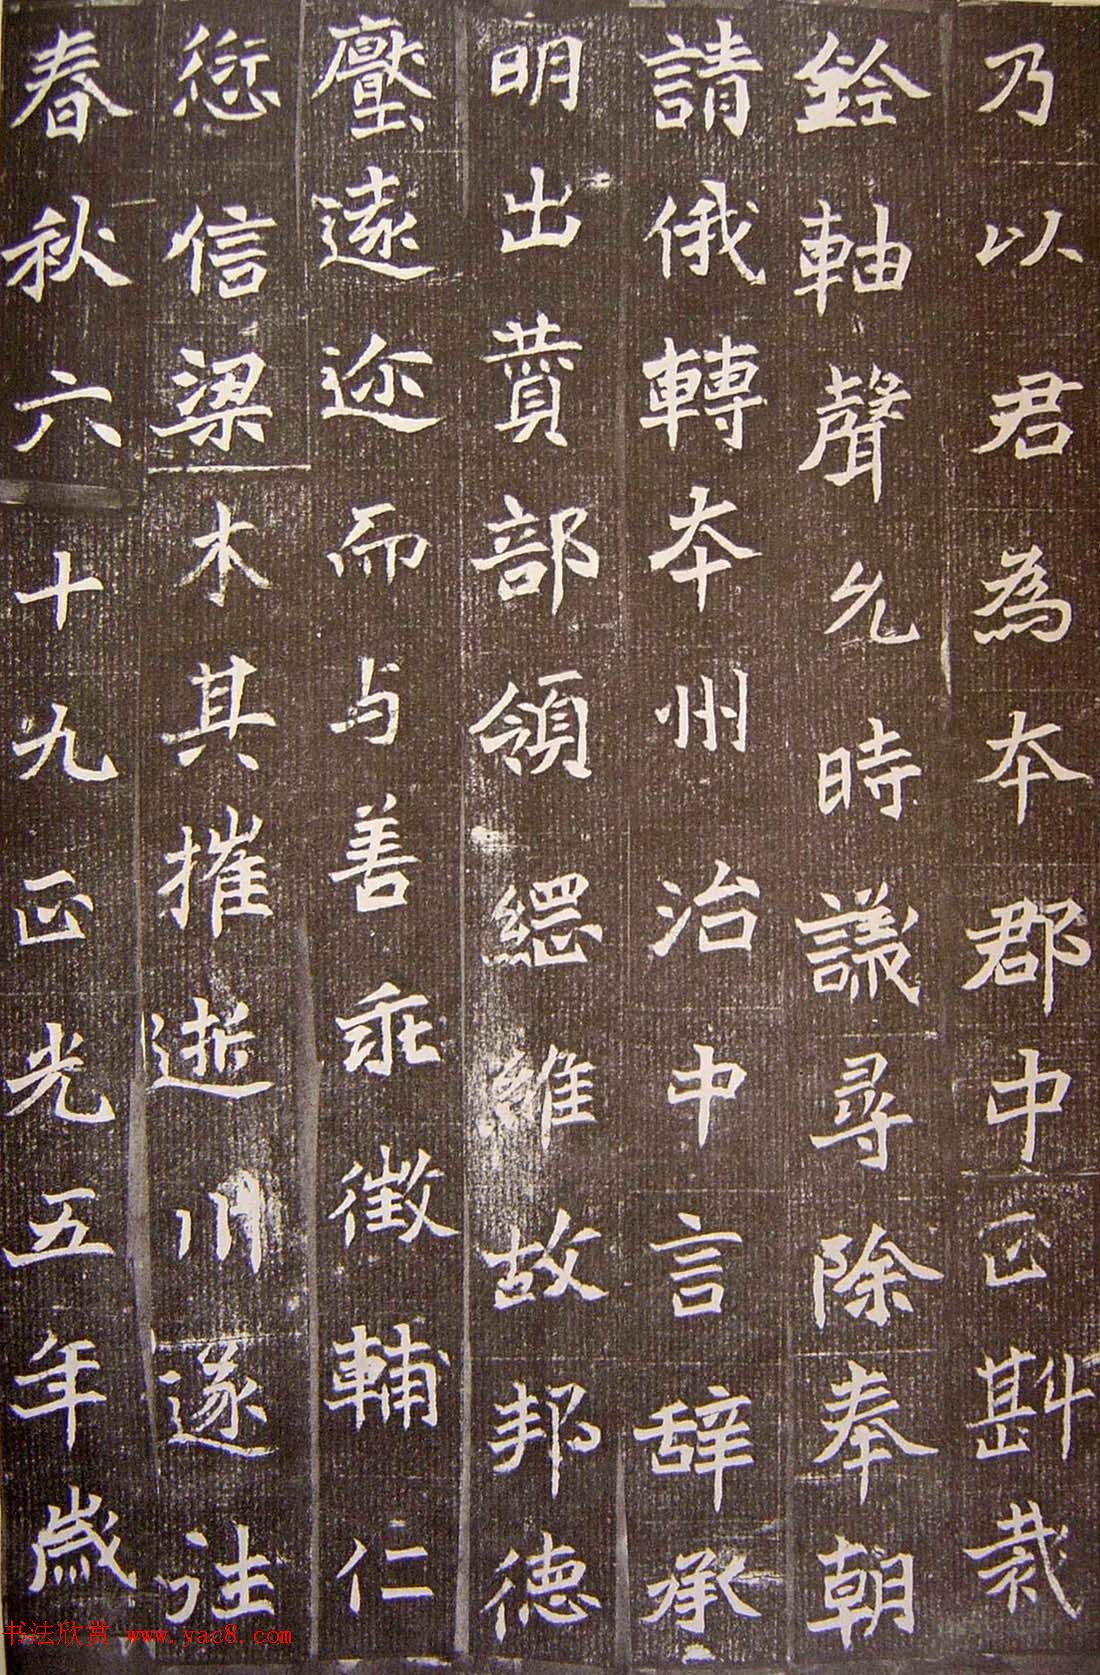 乃以君為本郡中正斟裁
銓軸聲允時議尋除奉朝
請俄轉本州治中言辞承
明出賛部領緦維故邦德
塵遠迩而与善乖徵輔仁
愆信梁木其摧逝川遂往
春秋六十九正光五年歲
书法欣赏 www.yac8.com